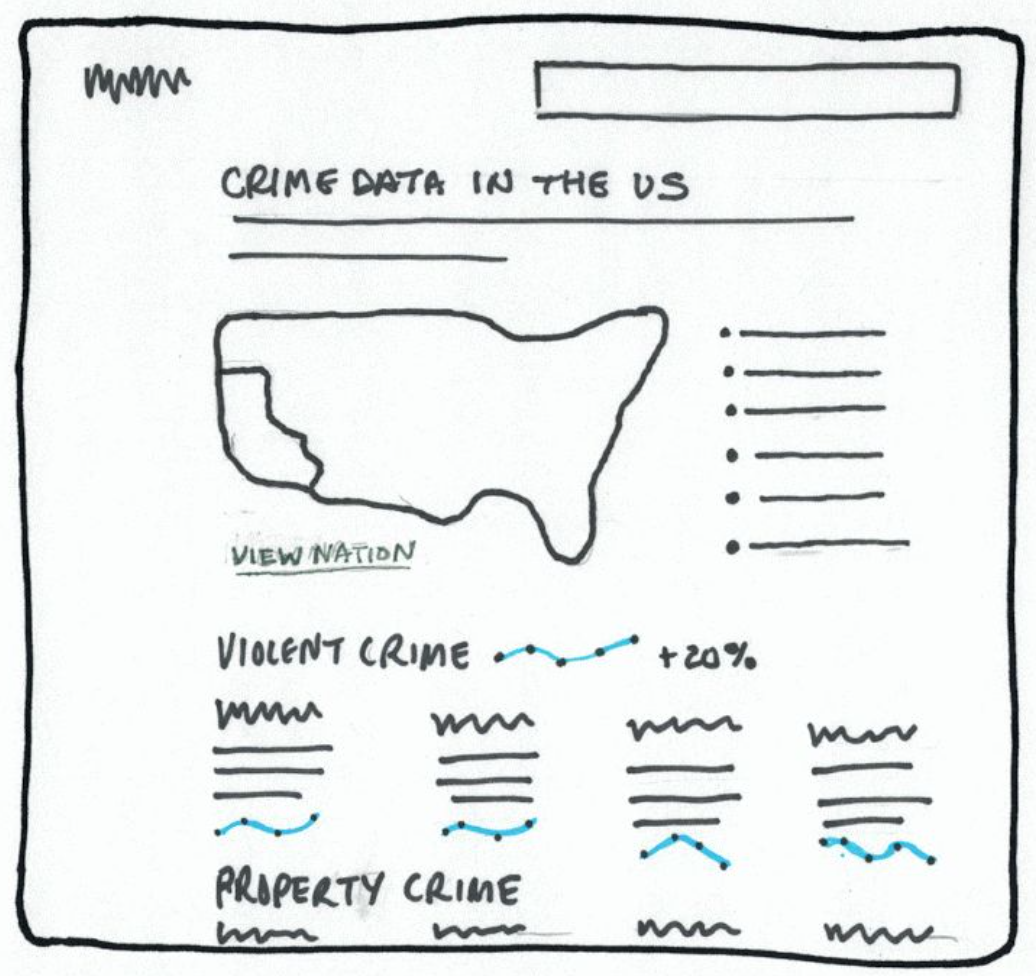 CRIME DATA IN THE US
VIEW NATION
VIOLENT CRIME +20%
PROPERTY CRIME